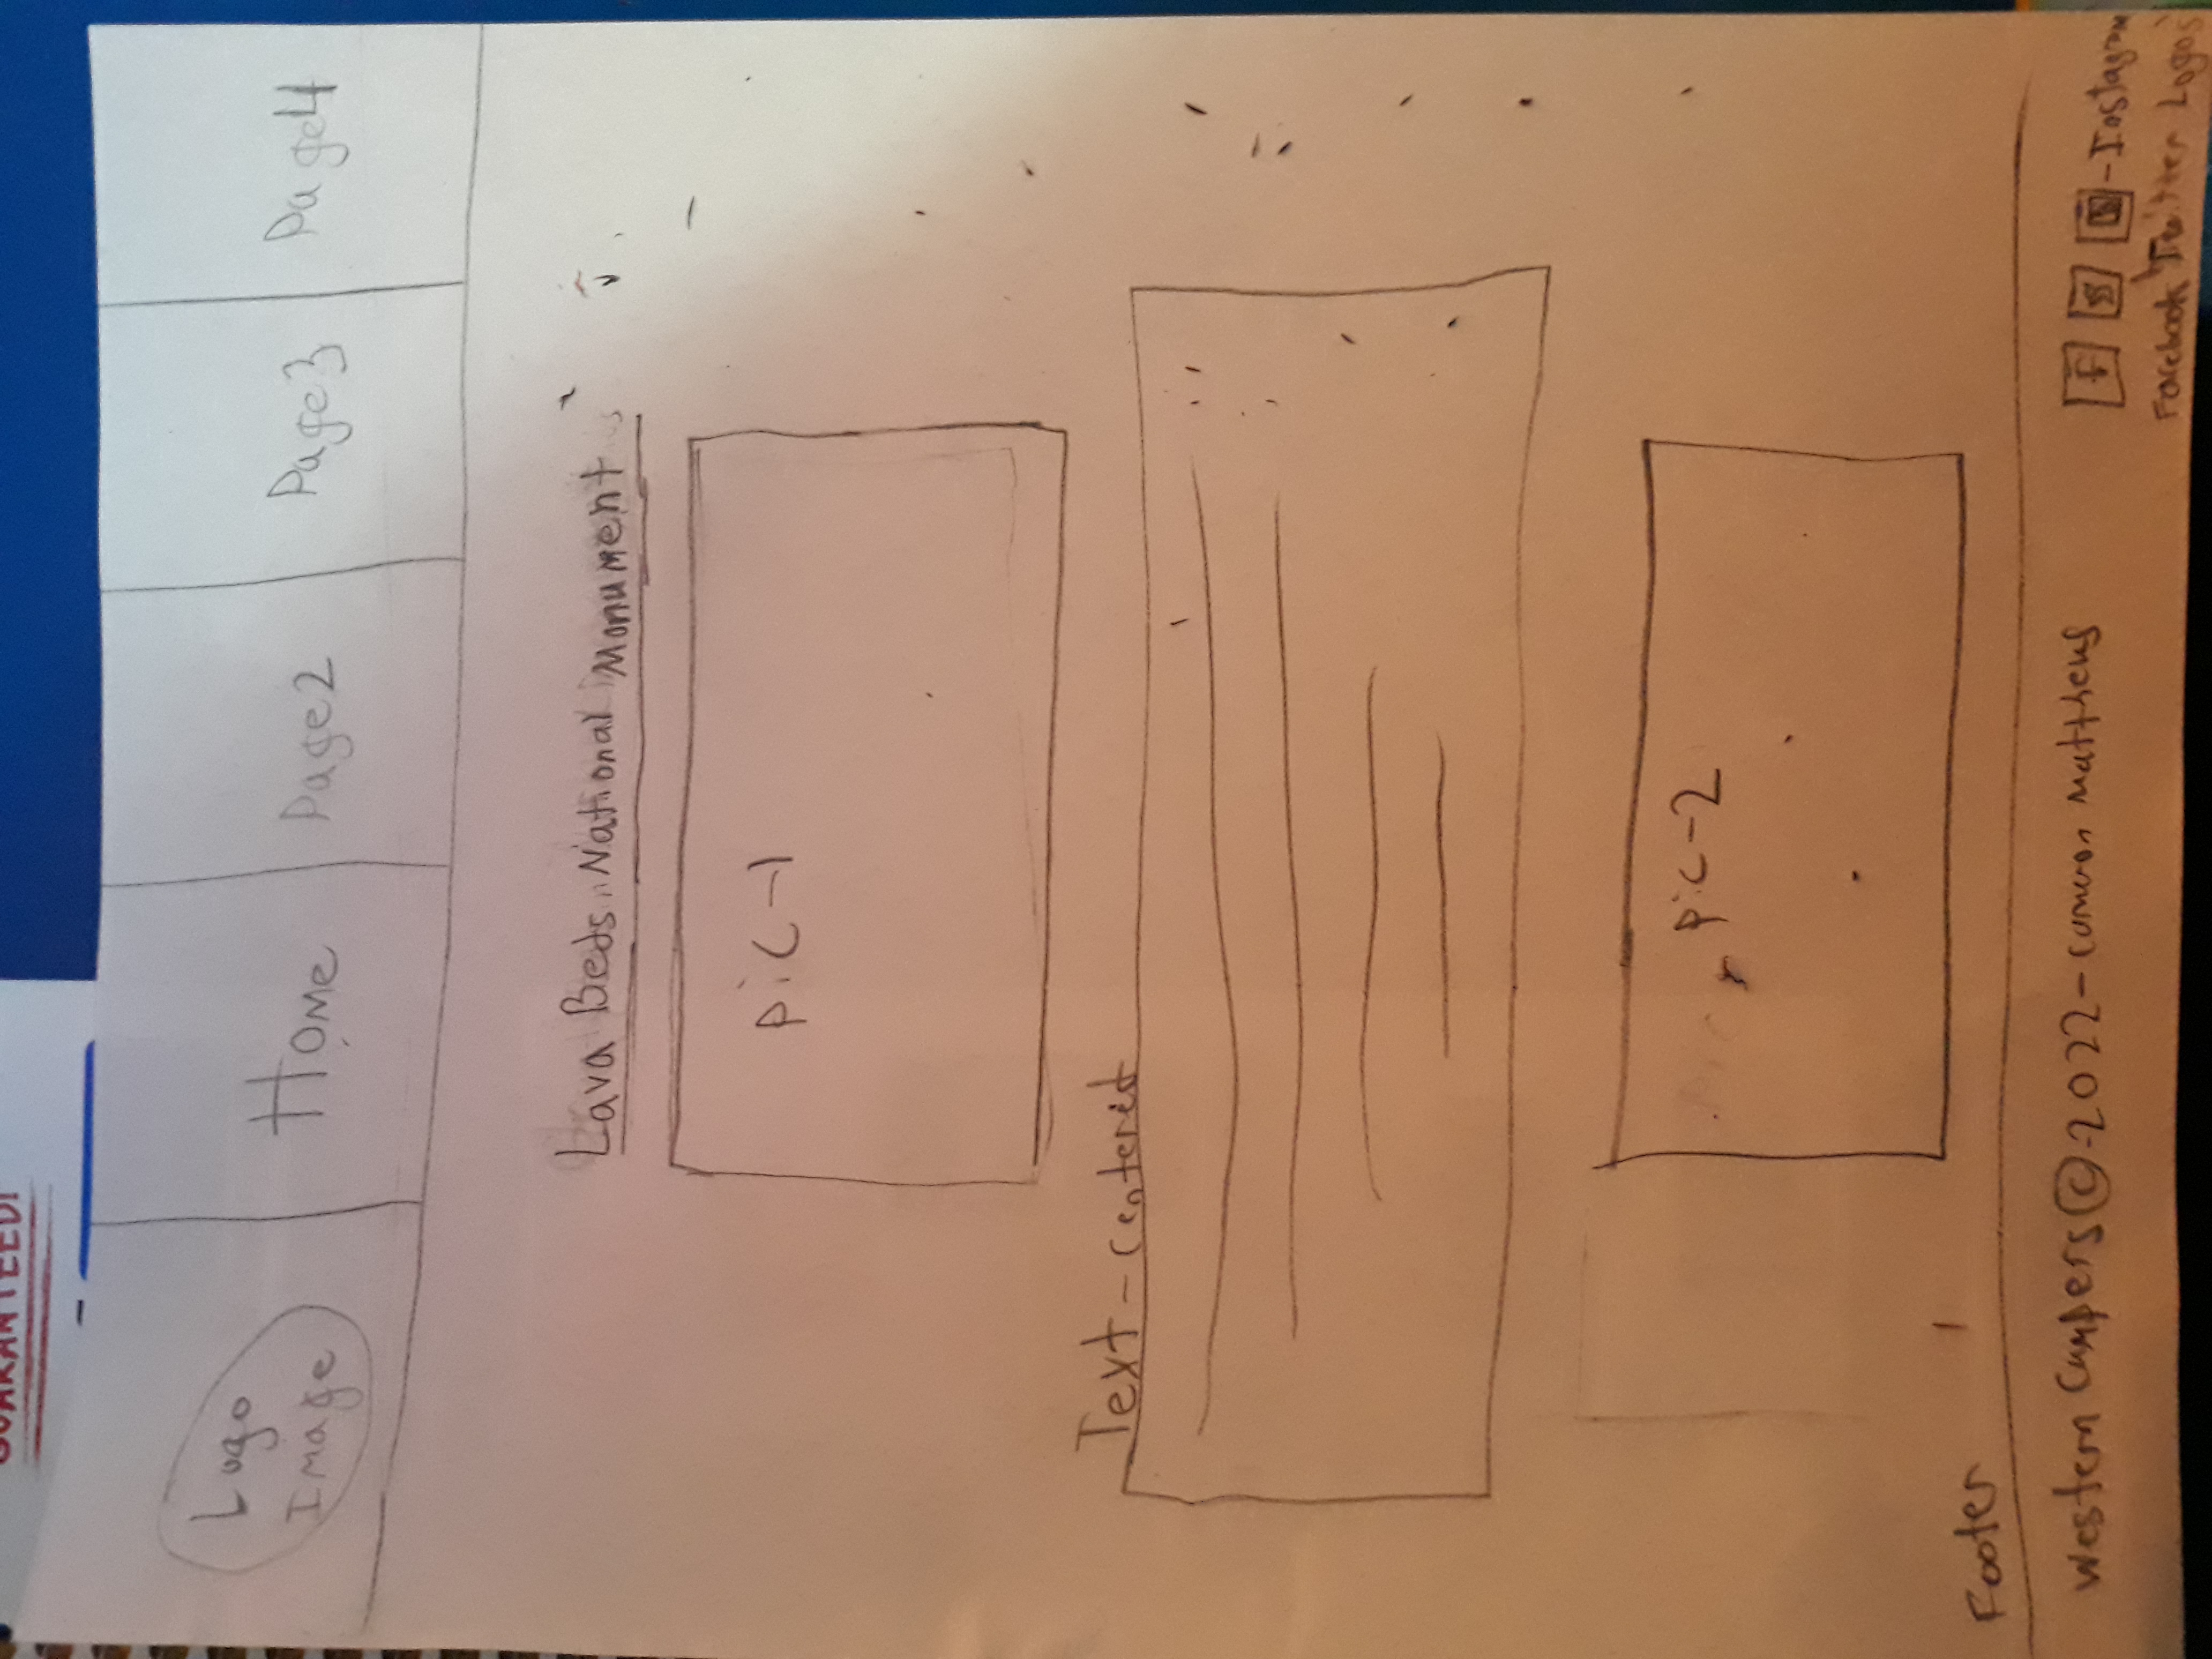 GUARANTEED!
Logo
Image
Home
Page2
Page3
Page4
Lava Beds National Monument
Pic-1
Text-centered
Pic-2
Footer
Western Campers © 2022- Matthews
f
-Instagram
Facebook Twitter Logos